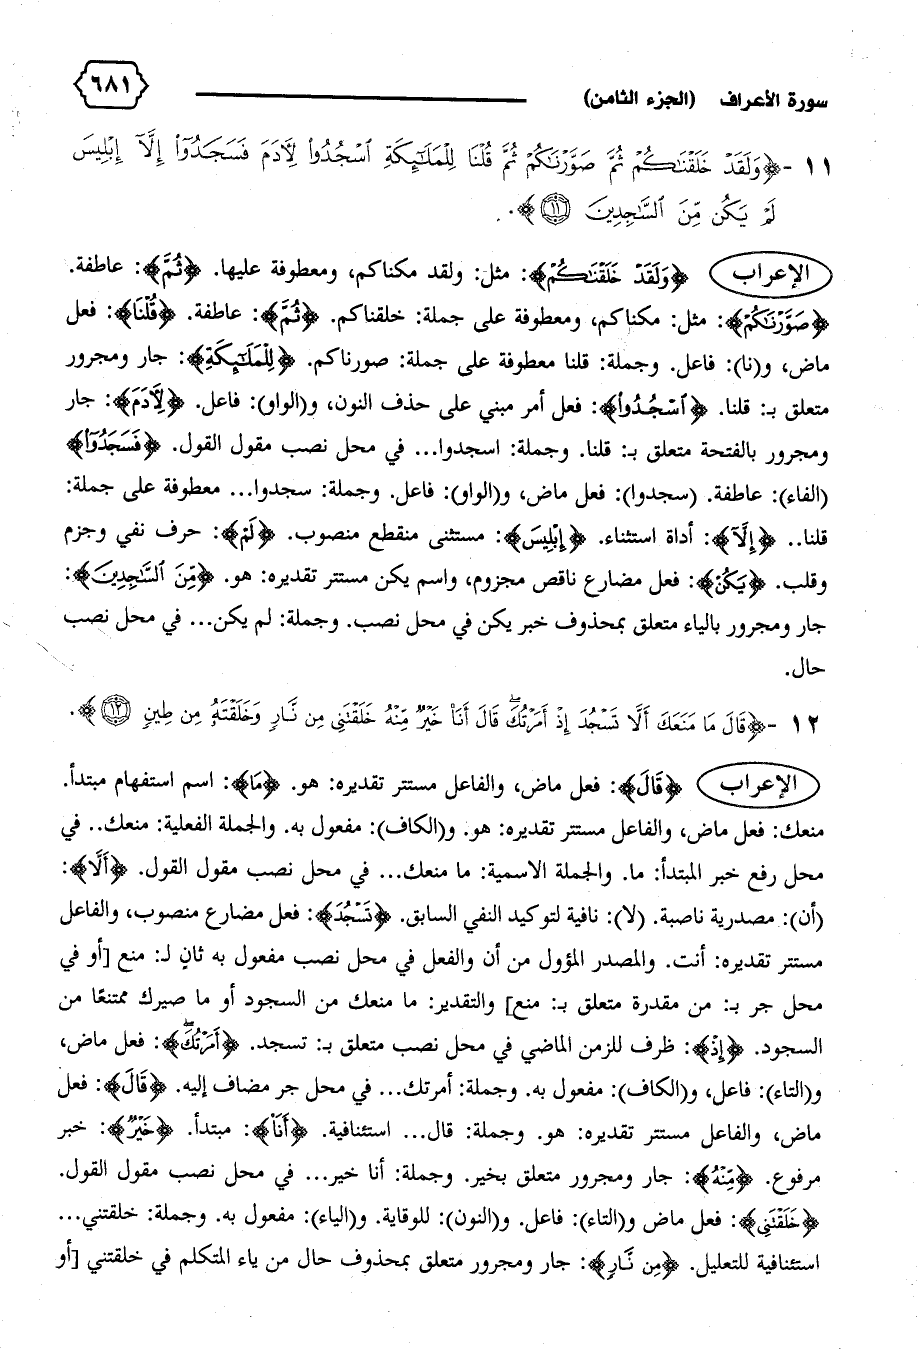 سورة الأعراف (الجزء الثامن) ٦٨١
١١ - ﴿وَلَقَدْ خَلَقْنَاكُمْ ثُمَّ صَوَّرْنَاكُمْ ثُمَّ قُلْنَا لِلْمَلَائِكَةِ اسْجُدُوا لِآدَمَ فَسَجَدُوا إِلَّا إِبْلِيسَ
لَمْ يَكُن مِّنَ السَّاجِدِينَ ١١﴾.
الإعراب ﴿وَلَقَدْ خَلَقْنَاكُمْ﴾: مثل: ولقد مكناكم، ومعطوفة عليها. ﴿ثُمَّ﴾: عاطفة.
﴿صَوَّرْنَاكُمْ﴾: مثل: مكناكم، ومعطوفة على جملة: خلقناكم. ﴿ثُمَّ﴾: عاطفة. ﴿قُلْنَا﴾: فعل
ماض، و(نا): فاعل. وجملة: قلنا معطوفة على جملة: صورناكم. ﴿لِلْمَلَائِكَةِ﴾: جار ومجرور
متعلق بـ: قلنا. ﴿اسْجُدُوا﴾: فعل أمر مبني على حذف النون، و(الواو): فاعل. ﴿لِآدَمَ﴾: جار
ومجرور بالفتحة متعلق بـ: قلنا. وجملة: اسجدوا... في محل نصب مقول القول. ﴿فَسَجَدُوا﴾
(الفاء): عاطفة. (سجدوا): فعل ماض، و(الواو): فاعل. وجملة: سجدوا... معطوفة على جملة:
قلنا.. ﴿إِلَّا﴾: أداة استثناء. ﴿إِبْلِيسَ﴾: مستثنى منقطع منصوب. ﴿لَمْ﴾: حرف نفي وجزم
وقلب. ﴿يَكُنْ﴾: فعل مضارع ناقص مجزوم، واسم يكن مستتر تقديره: هو. ﴿مِّنَ السَّاجِدِينَ﴾:
جار ومجرور بالياء متعلق بمحذوف خبر يكن في محل نصب. وجملة: لم يكن... في محل نصب
حال.
١٢ - ﴿قَالَ مَا مَنَعَكَ أَلَّا تَسْجُدَ إِذْ أَمَرْتُكَ ۖ قَالَ أَنَا خَيْرٌ مِّنْهُ خَلَقْتَنِي مِن نَّارٍ وَخَلَقْتَهُ مِن طِينٍ ١٢﴾.
الإعراب ﴿قَالَ﴾: فعل ماض، والفاعل مستتر تقديره: هو. ﴿مَا﴾: اسم استفهام مبتدأ.
منعك: فعل ماض، والفاعل مستتر تقديره: هو. و(الكاف): مفعول به. والجملة الفعلية: منعك.. في
محل رفع خبر المبتدأ: ما. والجملة الاسمية: ما منعك... في محل نصب مقول القول. ﴿أَلَّا﴾:
(أن): مصدرية ناصبة. (لا): نافية لتوكيد النفي السابق. ﴿تَسْجُدَ﴾: فعل مضارع منصوب، والفاعل
مستتر تقديره: أنت. والمصدر المؤول من أن والفعل في محل نصب مفعول به ثانٍ لـ: منع [أو في
محل جر بـ: من مقدرة متعلق بـ: منع] والتقدير: ما منعك من السجود أو ما صيرك ممتنعًا من
السجود. ﴿إِذْ﴾: ظرف للزمن الماضي في محل نصب متعلق بـ: تسجد. ﴿أَمَرْتُكَ ۖ﴾: فعل ماض،
و(التاء): فاعل، و(الكاف): مفعول به. وجملة: أمرتك... في محل جر مضاف إليه. ﴿قَالَ﴾: فعل
ماض، والفاعل مستتر تقديره: هو. وجملة: قال... استئنافية. ﴿أَنَا﴾: مبتدأ. ﴿خَيْرٌ﴾: خبر
مرفوع. ﴿مِّنْهُ﴾: جار ومجرور متعلق بخير. وجملة: أنا خير... في محل نصب مقول القول.
﴿خَلَقْتَنِي﴾: فعل ماض و(التاء): فاعل. و(النون): للوقاية. و(الياء): مفعول به. وجملة: خلقتني...
استئنافية للتعليل. ﴿مِن نَّارٍ﴾: جار ومجرور متعلق بمحذوف حال من ياء المتكلم في خلقتني [أو